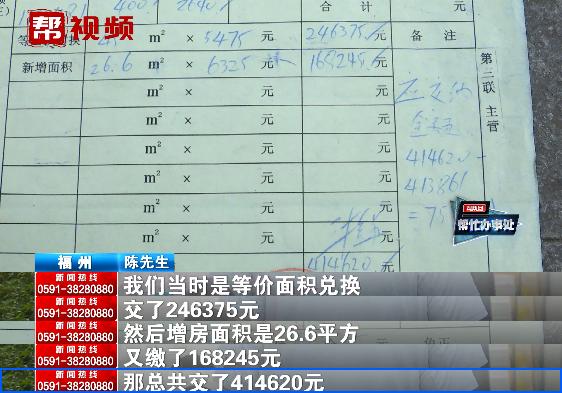 帮视频
合 计
等 换 m² × 5475 元 246375元 备 注
新增面积 26.6 m² × 6325 元 168245元
m² × 元 元
m² × 元 元
m² × 元 元
m² × 元 元
m² × 元 元
m² × 元 元
414620元
第三联 主管
414620-
413861
帮忙办事处
福 州 陈先生
新闻热线
0591-38280880
我们当时是等价面积兑换
新闻热线
0591-38280880
交了246375元
新闻热线
0591-38280880
然后增房面积是26.6平方
新闻热线
0591-38280880
又缴了168245元
新闻热线
0591-38280880
那总共交了414620元